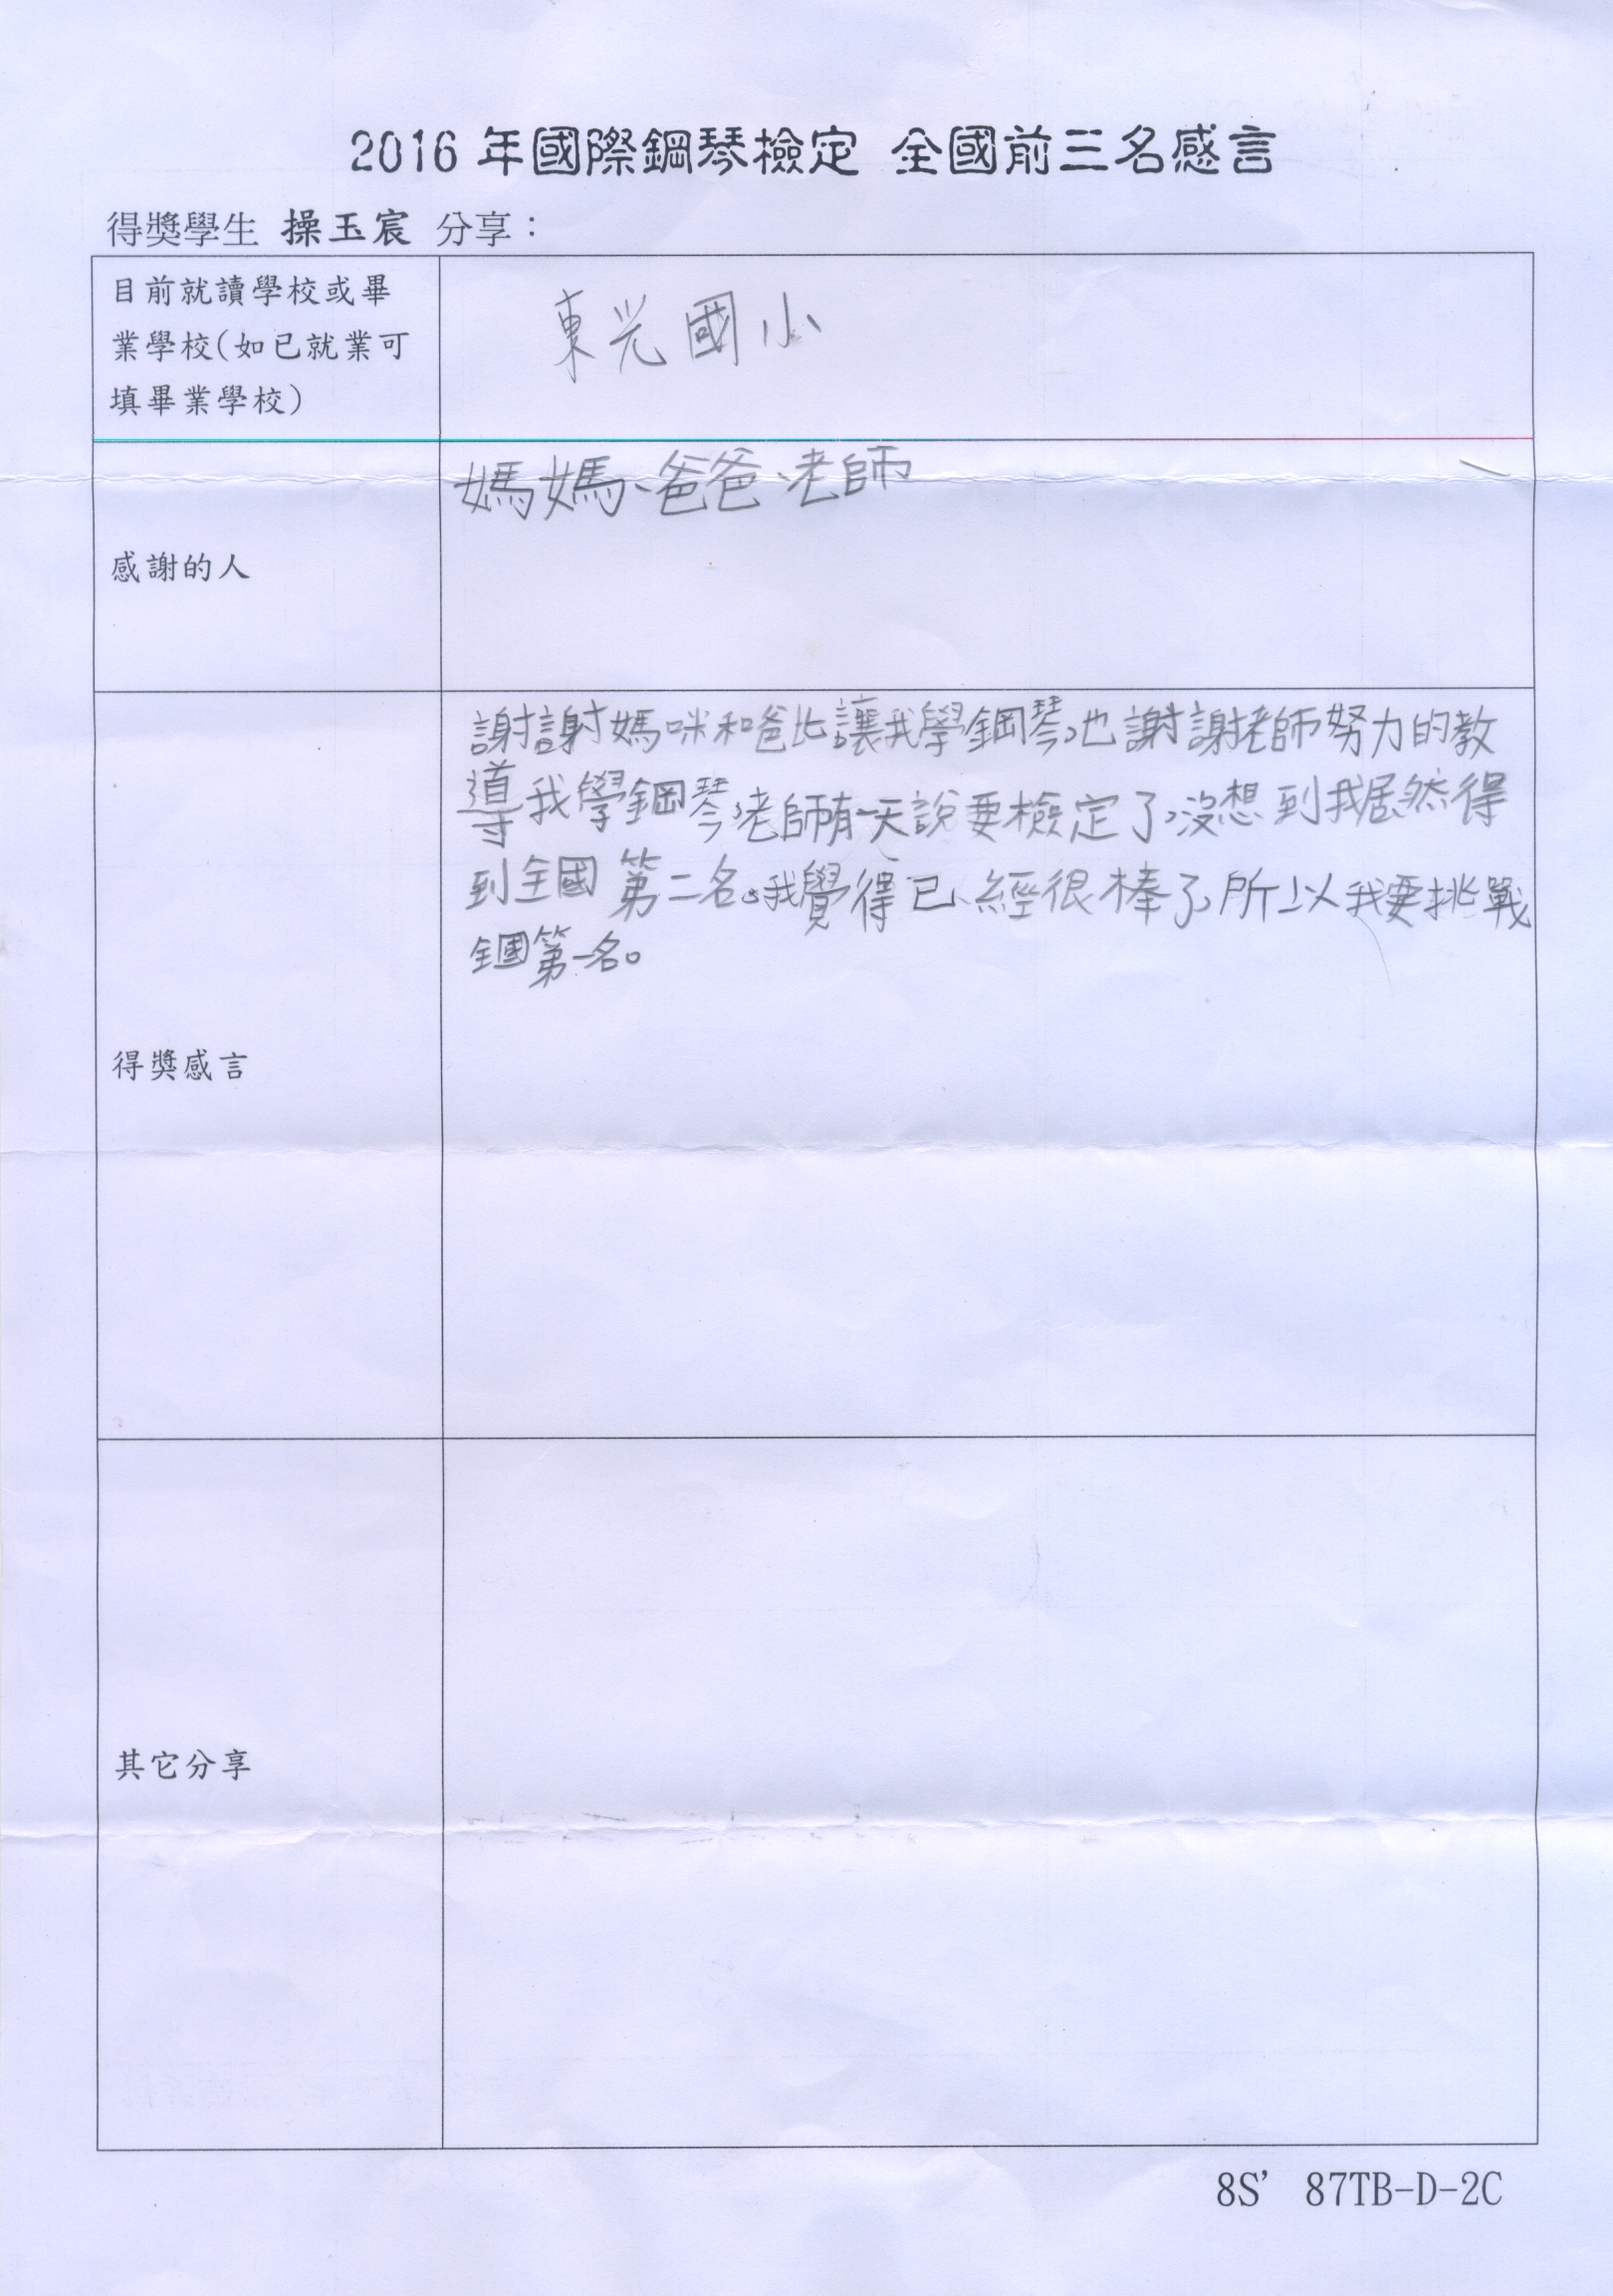 2016 年國際鋼琴檢定 全國前三名感言
得獎學生 操玉宸 分享：
目前就讀學校或畢
業學校(如已就業可
填畢業學校)
東光國小
感謝的人
媽媽、爸爸、老師
得獎感言
謝謝媽咪和爸比讓我學鋼琴，也謝謝老師努力的教
導我學鋼琴，老師有一天說要檢定了，沒想到我居然得
到全國第二名。我覺得已經很棒了，所以我要挑戰
全國第一名。
其它分享
8S' 87TB-D-2C